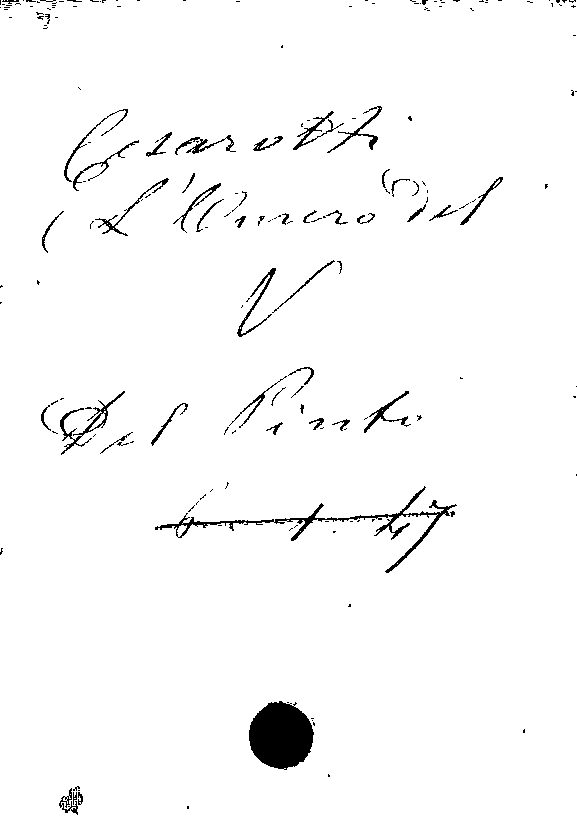 Cesarotti
(L'Omero del
V
Del Pinto
6. 1. 47